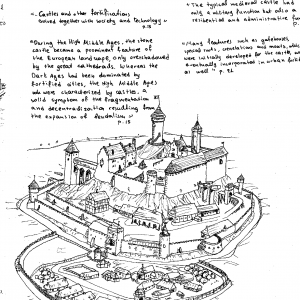 - Castles and other fortifications
evolved together with society and technology."
p.25
"During the High Middle Ages, the stone
castle became a prominent feature of
the European landscape, only overshadowed
by the great cathedrals. Whereas the
Dark Ages had been dominated by
fortified cities, the High Middle Ages
were characterized by castles, a
solid symbol of the fragmentation
and decentralization resulting from
the expansion of feudalism."
p-15
"The typical medieval castle had
only a military function but also a
residential and administrative
p.
"Many features such as gatehouses,
were initially developed for the
incorporated in urban
as well" p.